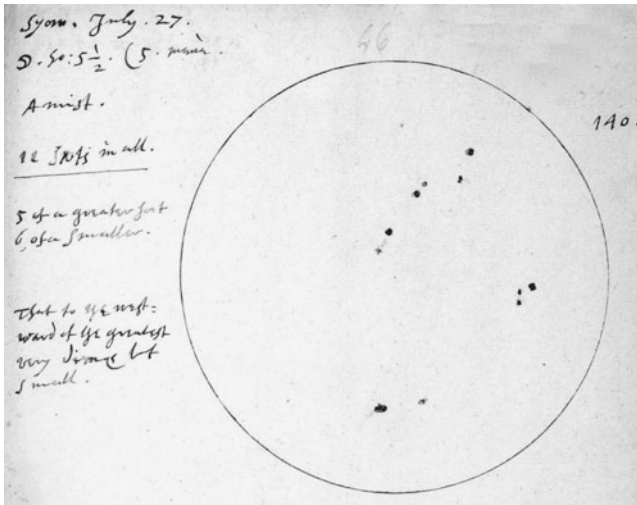 66
Syon. July. 27.
☽. ho: 5 ½. (5. manè.
A mist.
140.
11 spots in all.
5 of a greater sort
6, of a smaller.
That to the west-
ward of the greatest
very
small.